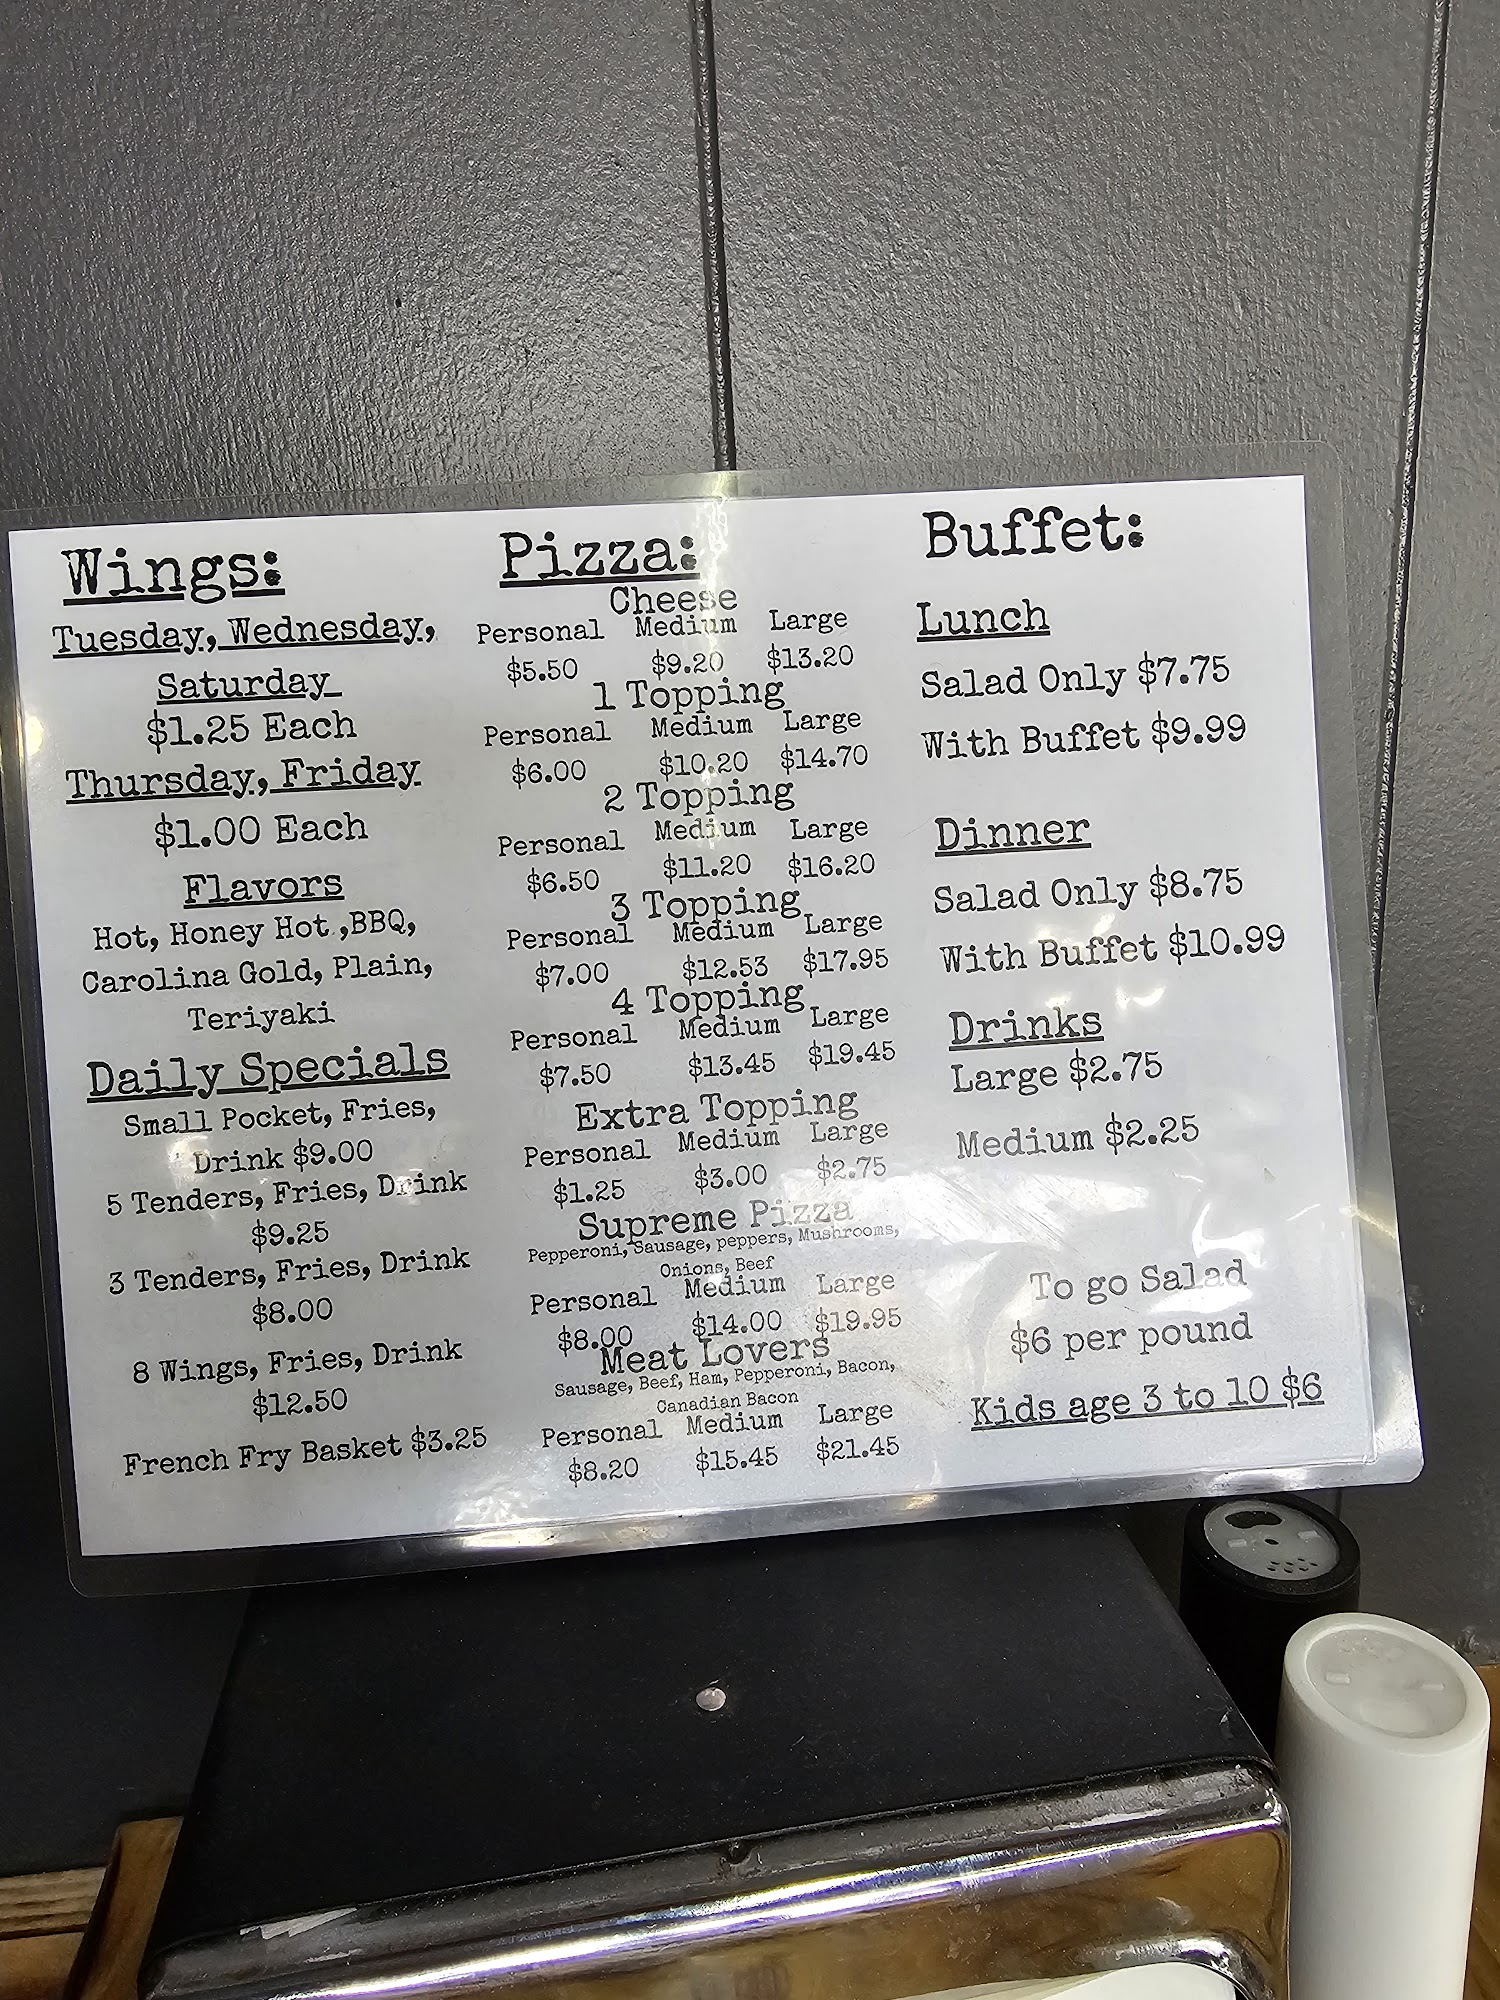 Wings:
Tuesday, Wednesday,
Saturday
$1.25 Each
Thursday, Friday
$1.00 Each
Flavors
Hot, Honey Hot ,BBQ,
Carolina Gold, Plain,
Teriyaki
Daily Specials
Small Pocket, Fries,
Drink $9.00
5 Tenders, Fries, Drink
$9.25
3 Tenders, Fries, Drink
$8.00
8 Wings, Fries, Drink
$12.50
French Fry Basket $3.25
Pizza:
Cheese
Personal Medium Large
$5.50 $9.20 $13.20
1 Topping
Personal Medium Large
$6.00 $10.20 $14.70
2 Topping
Personal Medium Large
$6.50 $11.20 $16.20
3 Topping
Personal Medium Large
$7.00 $12.53 $17.95
4 Topping
Personal Medium Large
$7.50 $13.45 $19.45
Extra Topping
Personal Medium Large
$1.25 $3.00 $2.75
Supreme Pizza
Pepperoni, Sausage, peppers, Mushrooms,
Onions, Beef
Personal Medium Large
$8.00 $14.00 $19.95
Meat Lovers
Sausage, Beef, Ham, Pepperoni, Bacon,
Canadian Bacon
Personal Medium Large
$8.20 $15.45 $21.45
Buffet:
Lunch
Salad Only $7.75
With Buffet $9.99
Dinner
Salad Only $8.75
With Buffet $10.99
Drinks
Large $2.75
Medium $2.25
To go Salad
$6 per pound
Kids age 3 to 10 $6